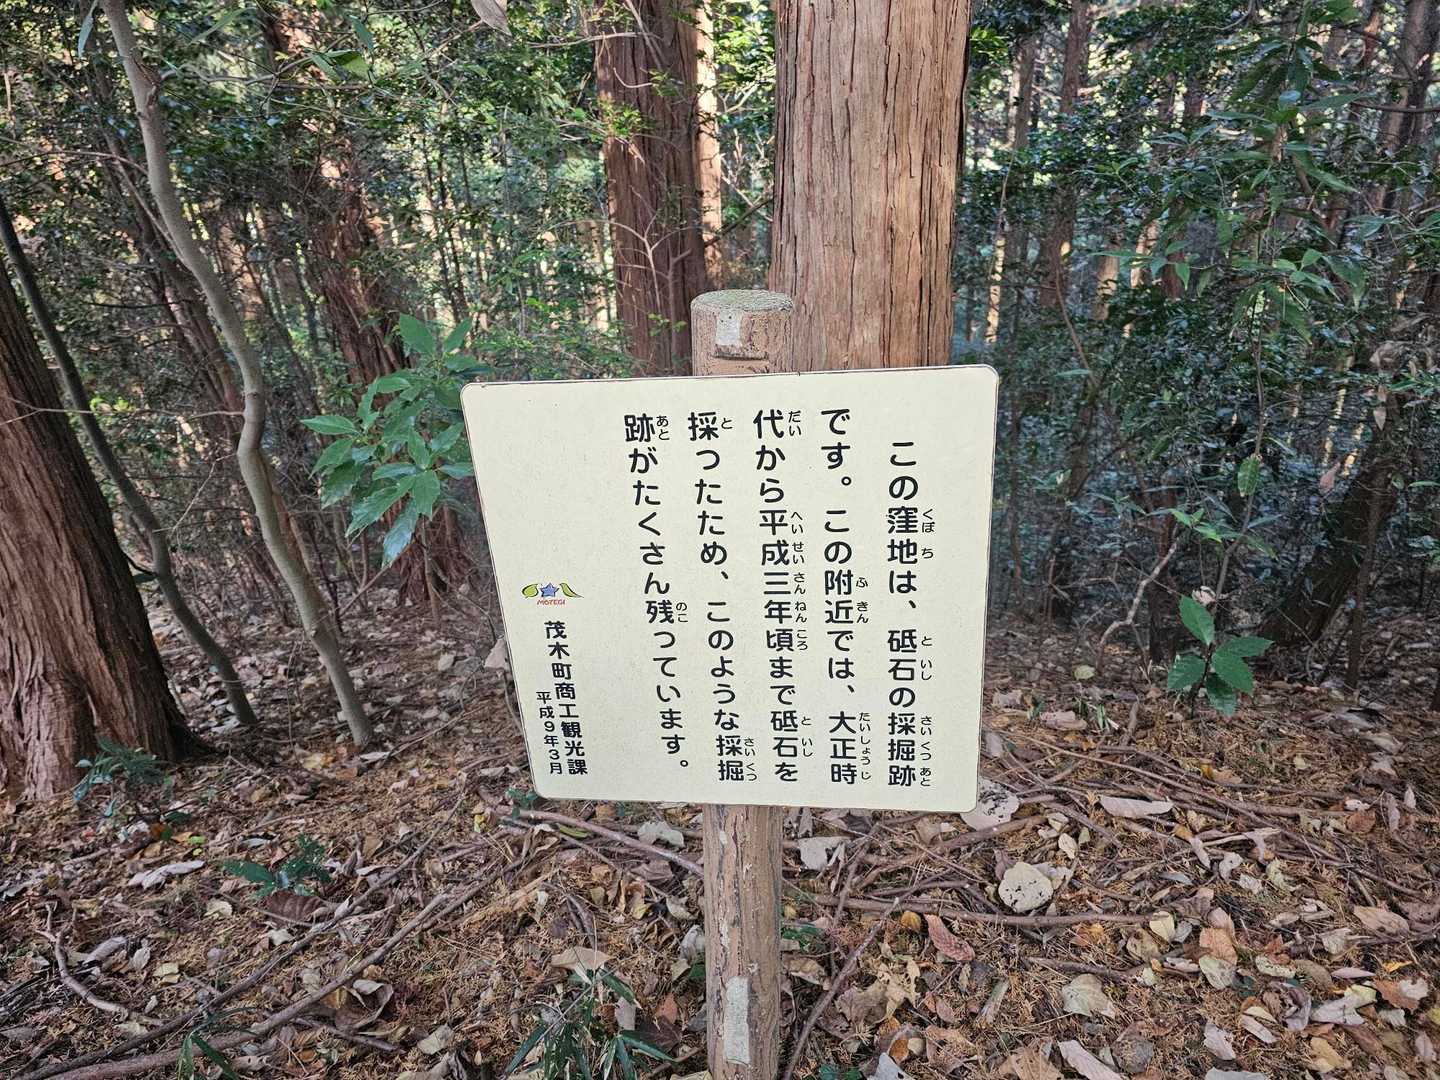 この窪地は、砥石の採掘跡
です。この附近では、大正時
代から平成三年頃まで砥石を
採ったため、このような採掘
跡がたくさん残っています。
MOTEGI
茂木町商工観光課
平成9年3月